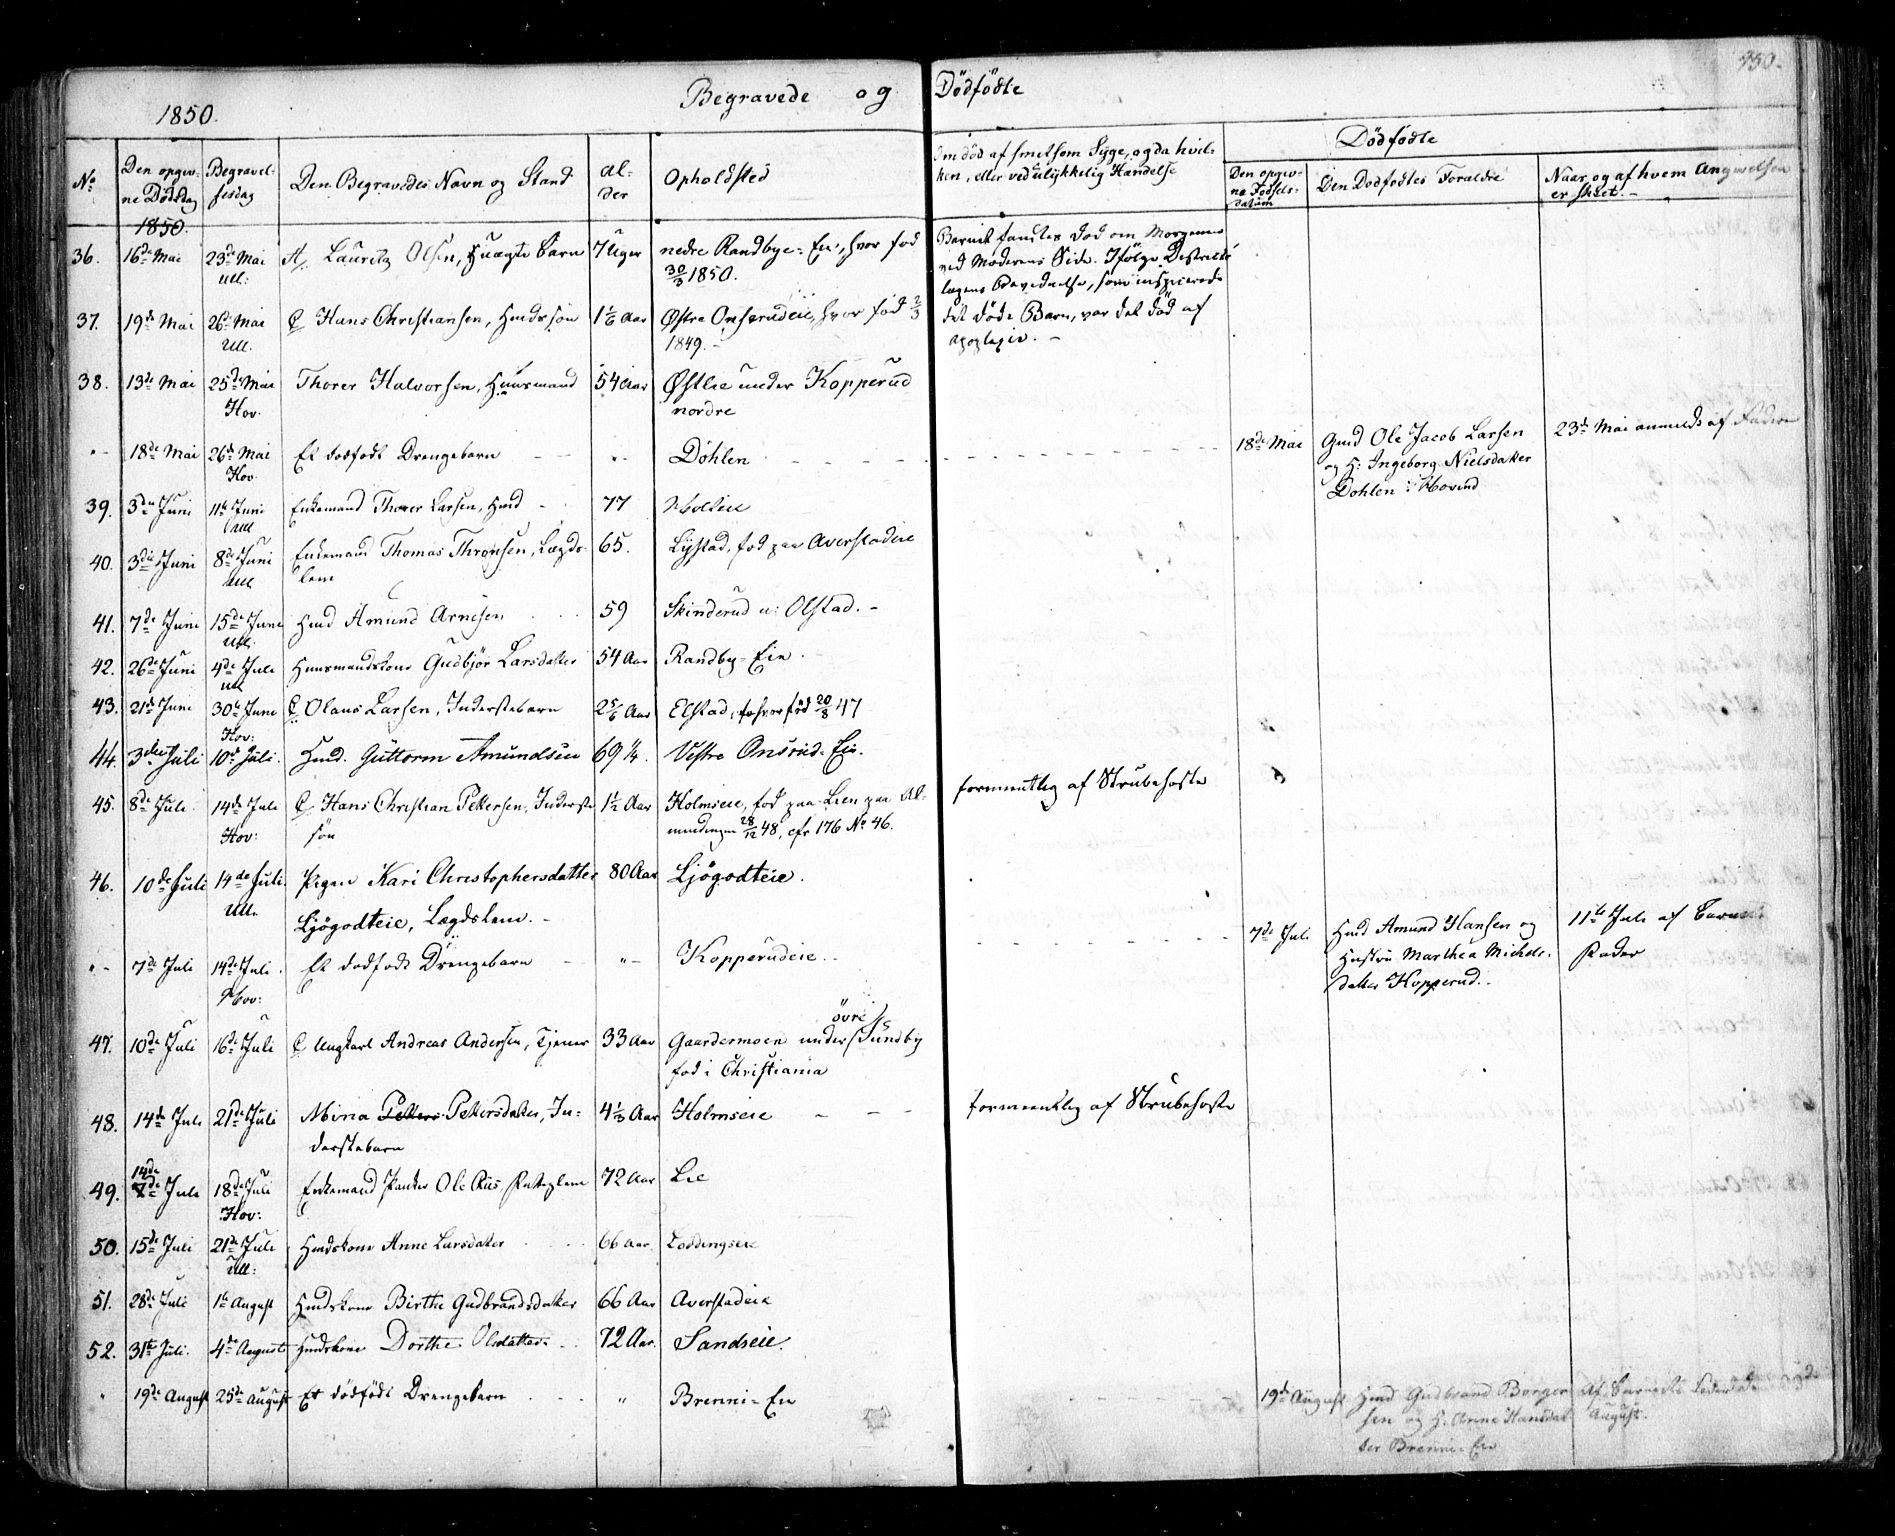 350.
1850.
Begravede og Dødfødte
Dødfødte
No
Den opgivne Dødsdag
Begravelsesdag
Den Begravedes Navn og Stand
Alder
Opholdsted
Om død af smitsom Syge, og da hvilken, eller ved ulykkelig Hændelse
Den opgivne Fødselsdatum
Den Dødfødtes Forældre
Naar og af hvem Angivelsen er skeet.
1850.
36. 16de Mai 23de Mai Ull: Lauritz Olsen, Uægte barn 7 Uger nedre Randbye-Eie, hvor fød 30/3 1850.
Barnet fandtes død om Morgenen ved Moderens Side. Ifølge
som inspicerede det døde Barn, var det død af apoplexie. -
37. 19de Mai 26de Mai Ull. Hans Christiansen, Hmdssøn 1 1/6 Aar Østre Onsrudeie, hvor fød 2/3 1849. -
38. 13de Mai 25de Mai Hov. Thorer Halvorsen, Huusmand 54 Aar Østlie under Kopperud nordre
"- 18de Mai 26de Mai Hov. Et dødfødt Drengebarn "- Döhlen
18de Mai Gmd Ole Jacob Larsen og H: Ingeborg Nielsdatter Dohlen i Hovind
23de Mai anmeldt af Faderen
39. 3die Juni 11te Juni Ull Enkemand Thorer Larsen, Hmd 77 Holteie
40. 3die Juni 8de Juni Ull Enkemand Thomas Thronsen, Lægdslem 65. Lystad, fød paa Averstadeie
41. 7de Juni 15de Juni Ull. Hmd Amund Arnesen 59 Skinderud u: Olstad. -
42. 26de Juni 4de Juli Ull Huusmandskone Gudbjør Larsdatter 54 Aar Randby-Eie.
43. 21de Juni 30te Juni Hov: Olaus Larsen, Inderstebarn 2 5/6 Aar Elstad, hvor fød 20/8 47
44. 3die Juli 10de Juli. Hmd. Guttorm Amundsen 69 1/4. Vestre Onsrud-Eie.
45. 8de Juli 14de Juli Hov: Hans Christian Pettersen, Inderstesøn 1 1/2 Aar Holmseie, fød paa Lien paa Almindingen 28/12 48, cfr 176 No 46.
formentlig af Strubehoste
46. 10de Juli 14de Juli. Ull. Pigen Kari Christophersdatter Ljögodteie, Lægdslem. - 80 Aar Ljögodteie.
"- 7de Juli 14de Juli. Hov: Et dødfødt Drengebarn - "- Kopperudeie.
7de Juli Hmd Amund Hansen og Hustru Marthea Michelsdatter Kopperud.
11te Juli af Barnets Fader
47. 10de Juli 16de Juli Ungkarl Andreas Andersen, Tjener 33 Aar Gaardermoen under øvre Sundby fød i Christiania
48. 14de Juli 21de Juli Mina Petters Pettersdatter, Inderstebarn 4 1/3 Aar Holmseie
formentlig af Strubehoste
49. 14de 7de Juli 18de Juli Hov: Enkemand Ole Riis, 72 Aar Lie
50. 15de Juli 21de Juli Ull: Hmdskone Anne Larsdatter 66 Aar. Loddingseie
51. 28de Juli 1te August Hmdskone Birthe Gudbrandsdatter 66 Aar Averstadeie
52. 31te Juli. 4de August Hmdskone Dorthe Olsdatter. 72 Aar. Sandseie.
" 19de August 25de August Et dödfödt Drengebarn " Brenni-Eie
19de August Hmd Gudbrand Borgersen og H. Anne Hansdatter Brenni-Eie
Af Barnets Fader August.